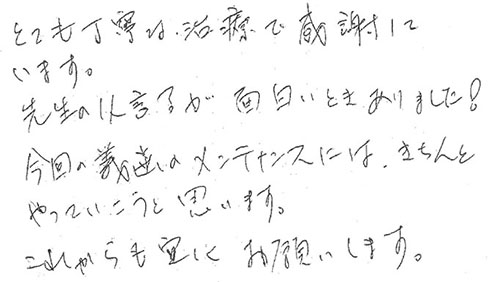 とても丁寧な治療で感謝して
います。
先生の が面白いときありました!
今回の のメンテナンスには、きちんと
やっていこうと思います。
これからも宜しくお願いします。